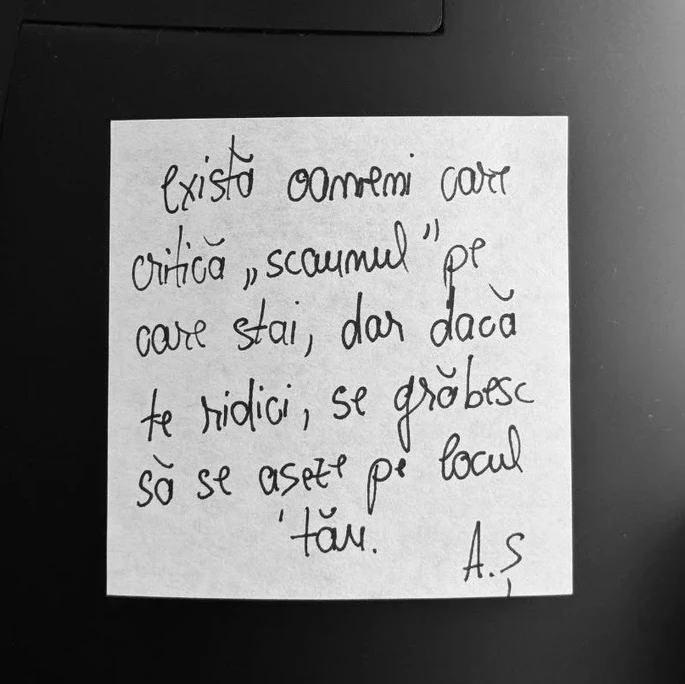 există oameni care
critică „scaunul" pe
care stai, dar dacă
te ridici, se grăbesc
să se așeze pe locul
tău.
A.Ș